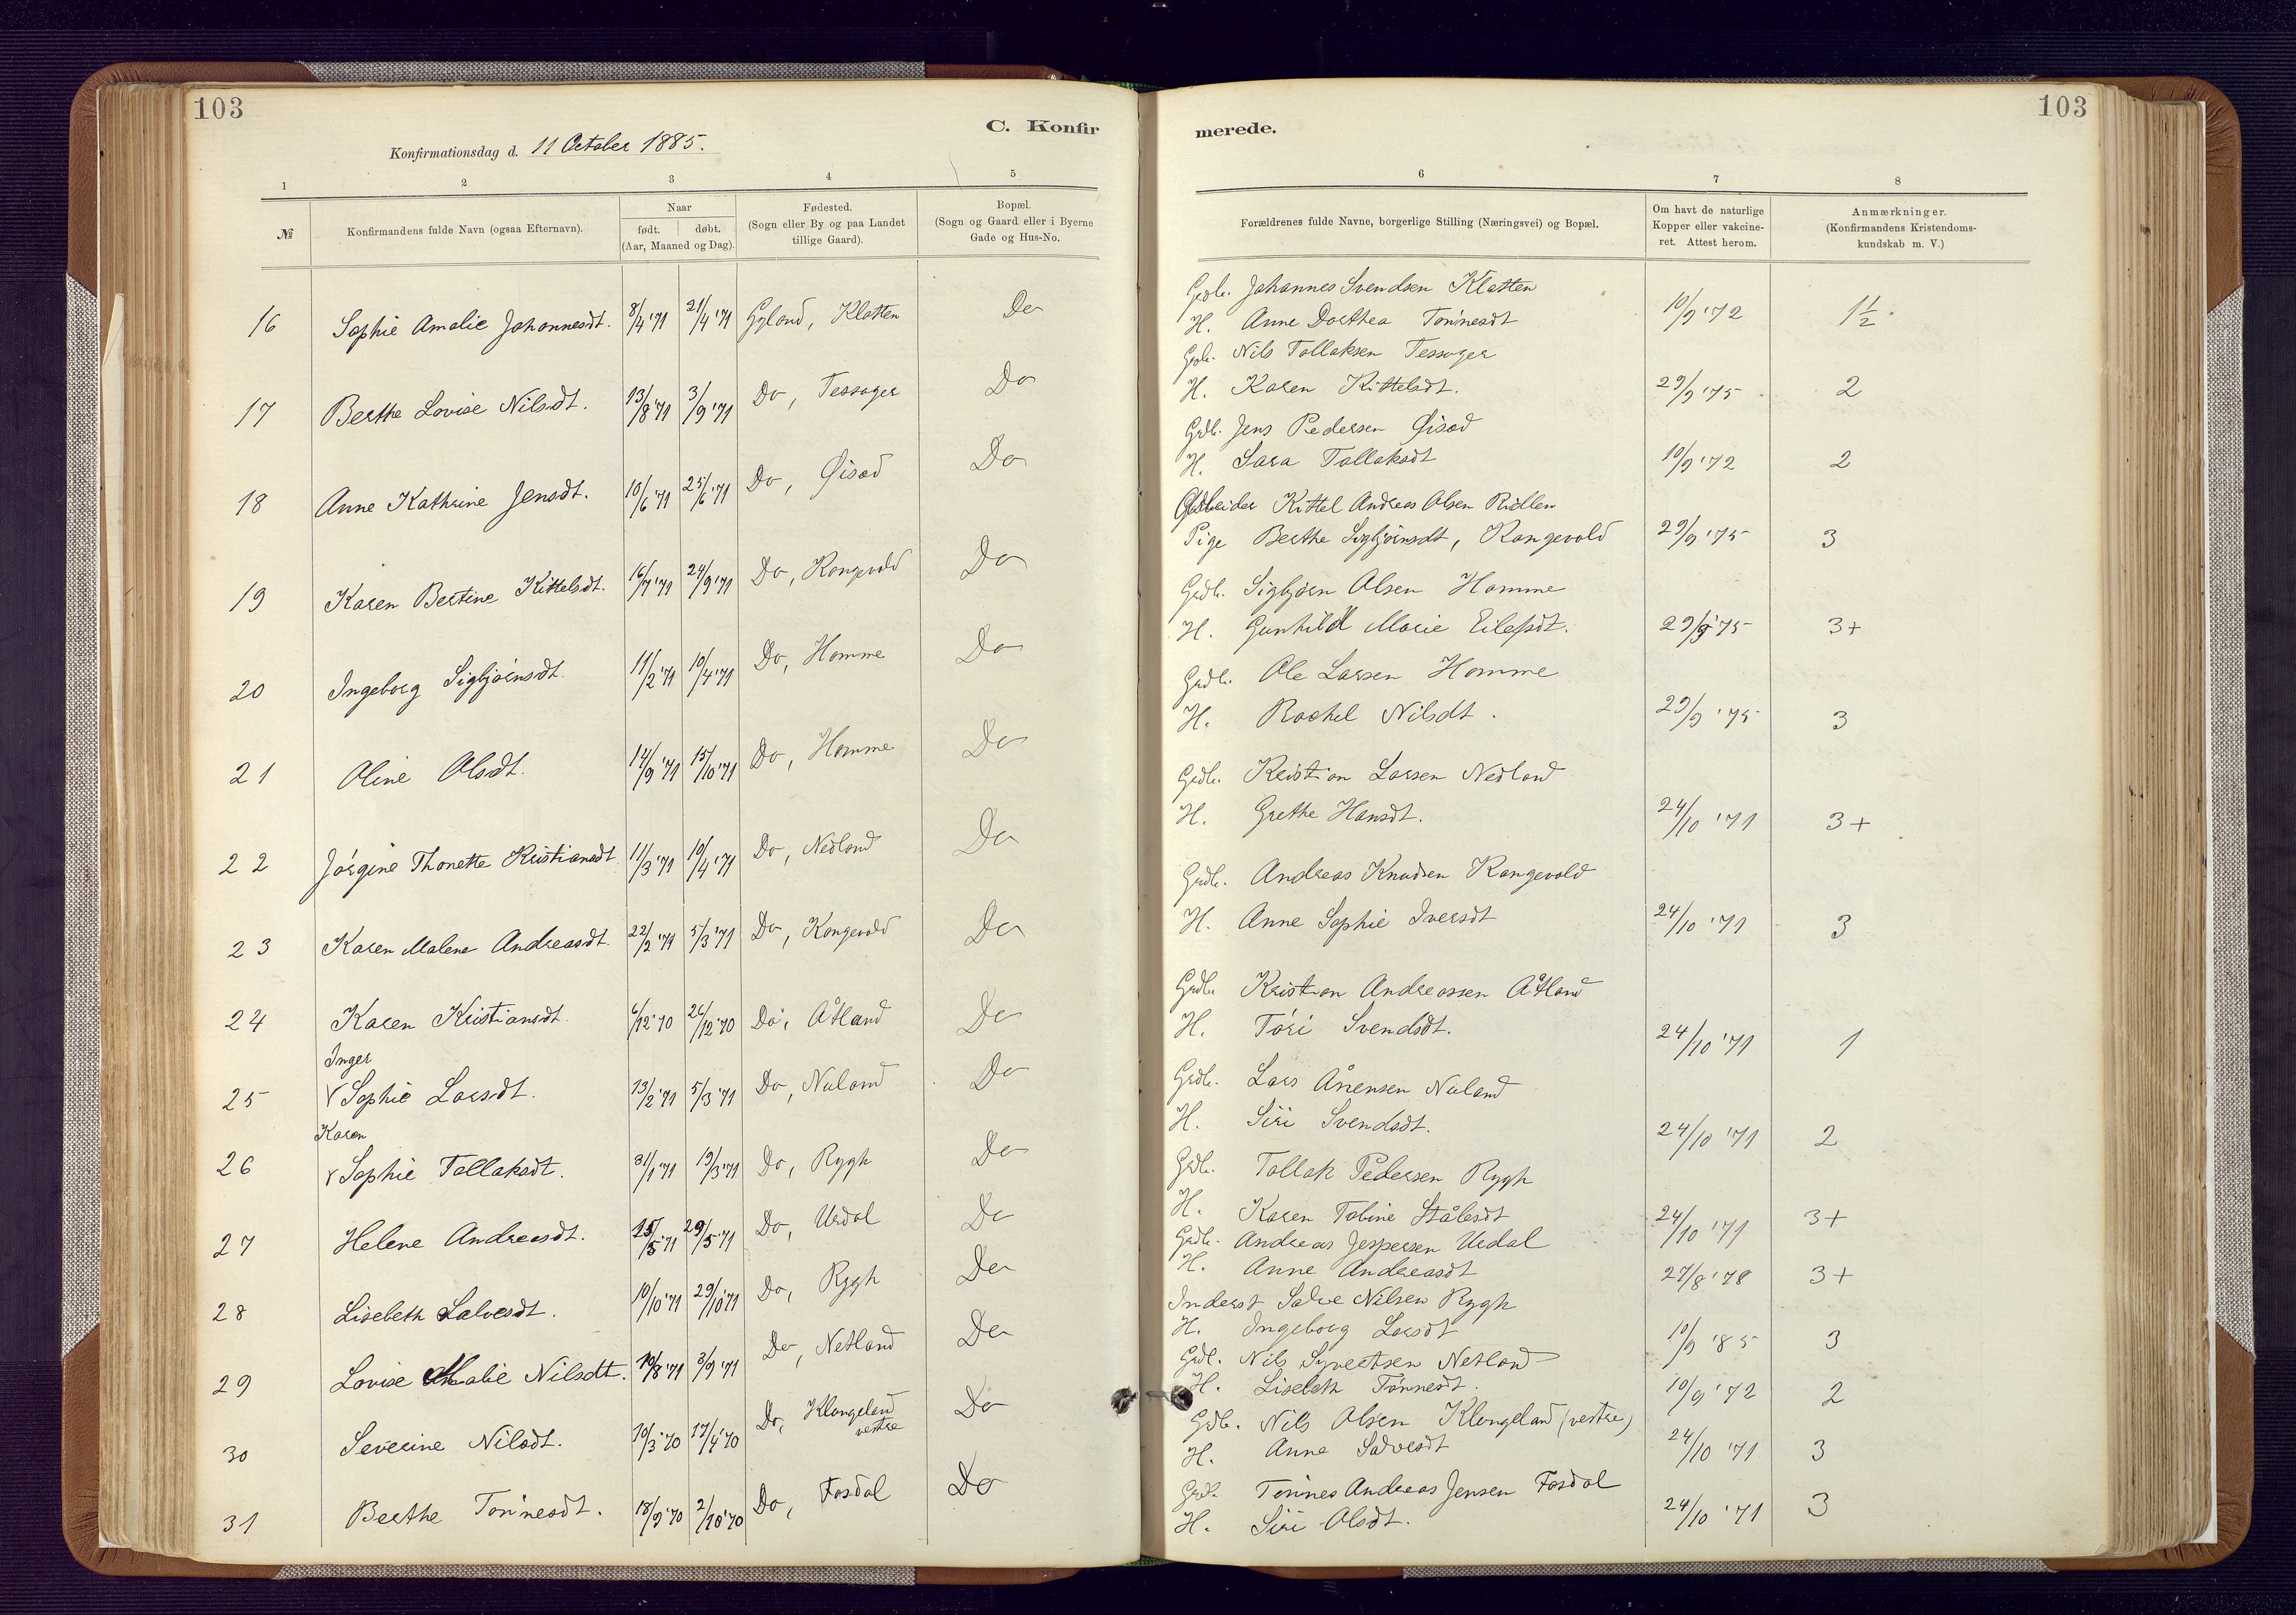 103
C. Konfir
Konfirmationsdag d. 11 October 1885.
1 2 3 4 5
№
Konfirmandens fulde Navn (ogsaa Efternavn).
Naar
født. døbt.
(Aar, Maaned og Dag).
Fødested.
(Sogn eller By og paa Landet
tillige Gaard).
Bopæl.
(Sogn og Gaard eller i Byerne
Gade og Hus-No.
16 Sophie Amalie Johannesdt. 8/4 '71 21/4 '71 Gyland, Klatten Do
17 Berthe Lovise Nilsdt. 13/8 '71 3/9 '71 Do, Tessager Do
18 Anne Kathrine Jensdt. 10/6 '71 25/6 '71 Do, Øisæd Do
19 Karen Bertine Kittelsdt. 16/7 '71 24/9 '71 Do, Kongevold Do
20 Ingeborg Sigbjørnsdt. 11/2 '71 10/4 '71 Do, Homme Do
21 Oline Olsdt. 14/9 '71 15/10 '71 Do, Homme Do
22 Jørgine Thonette Kristiansdt 11/3 '71 10/4 '71 Do, Nedland Do
23 Karen Malene Andreasdt. 22/2 '71 5/3 '71 Do, Kongevold Do
24 Karen Kristiansdt. 6/12 '70 26/12 '70 Do, Åtland Do
Inger
25 Sophie Larsdt. 13/2 '71 5/3 '71 Do, Nuland Do
Karen
26 Sophie Tallaksdt. 31/1 '71 19/3 '71 Do, Rygh Do
27 Helene Andreasdt. 15/5 '71 29/5 '71 Do, Urdal Do
28 Lisebeth Salvesdt. 10/10 '71 29/10 '71 Do, Rygh Do
29 Lovise Malie Nilsdt. 10/8 '71 3/9 '71 Do, Netland Do
30 Severine Nilsdt. 10/3 '70 17/4 '70 Do, Klungeland vestre Do
31 Berthe Tønnesdt. 18/9 '70 2/10 '70 Do, Fosdal Do
103
merede.
6 7 8
Forældrenes fulde Navne, borgerlige Stilling (Næringsvei) og Bopæl.
Om havt de naturlige
Kopper eller vakcine-
ret. Attest herom.
Anmærkninger.
(Konfirmandens Kristendoms-
kundskab m. V.)
Grdb. Johannes Svendsen Klatten
H. Anne Dorthea Tønnesdt 10/9 '72 1½
Grdb. Nils Tallaksen Tessager
H. Karen Kittelsdt. 29/9 '75 2
Grdb. Jens Pedersen Øisæd
H. Sara Tallaksdt 10/9 '72 2
Kittel Andreas Olsen Ridlen
Pige Berthe Sigbjørnsdt, Kongevold 29/9 '75 3
Grdb. Sigbjørn Olsen Homme
H. Gunhild Marie Eilefsdt. 29/9 '75 3+
Grdb. Ole Larsen Homme
H. Rachel Nilsdt. 29/9 '75 3
Grdb. Kristian Larsen Nedland
H. Grethe Hansdt. 24/10 '71 3+
Grdb. Andreas Knudsen Kongevold
H. Anne Sophie Iversdt 24/10 '71 3
Grdb. Kristian Andreassen Åtland
H. Tøri Svendsdt. 24/10 '71 1
Grdb. Lars Ånensen Nuland
H. Siri Svendsdt. 24/10 '71 2
Grdb. Tallak Pedersen Rygh
H. Karen Tobine Ståliesdt 24/10 '71 3+
Grdb. Andreas Jespersen Urdal
H. Anne Andreasdt 27/8 '78 3+
Inderst Salve Nilsen Rygh
H. Ingeborg Larsdt 10/9 '85 3
Grdb. Nils Syvertsen Netland
H. Lisebeth Tønnesdt. 10/9 '72 2
Grdb. Nils Olsen Klungeland (vestre)
H. Anne Salvesdt 24/10 '71 3
Grdb. Tønnes Andreas Jensen Fosdal
H. Siri Olsdt. 24/10 '71 3